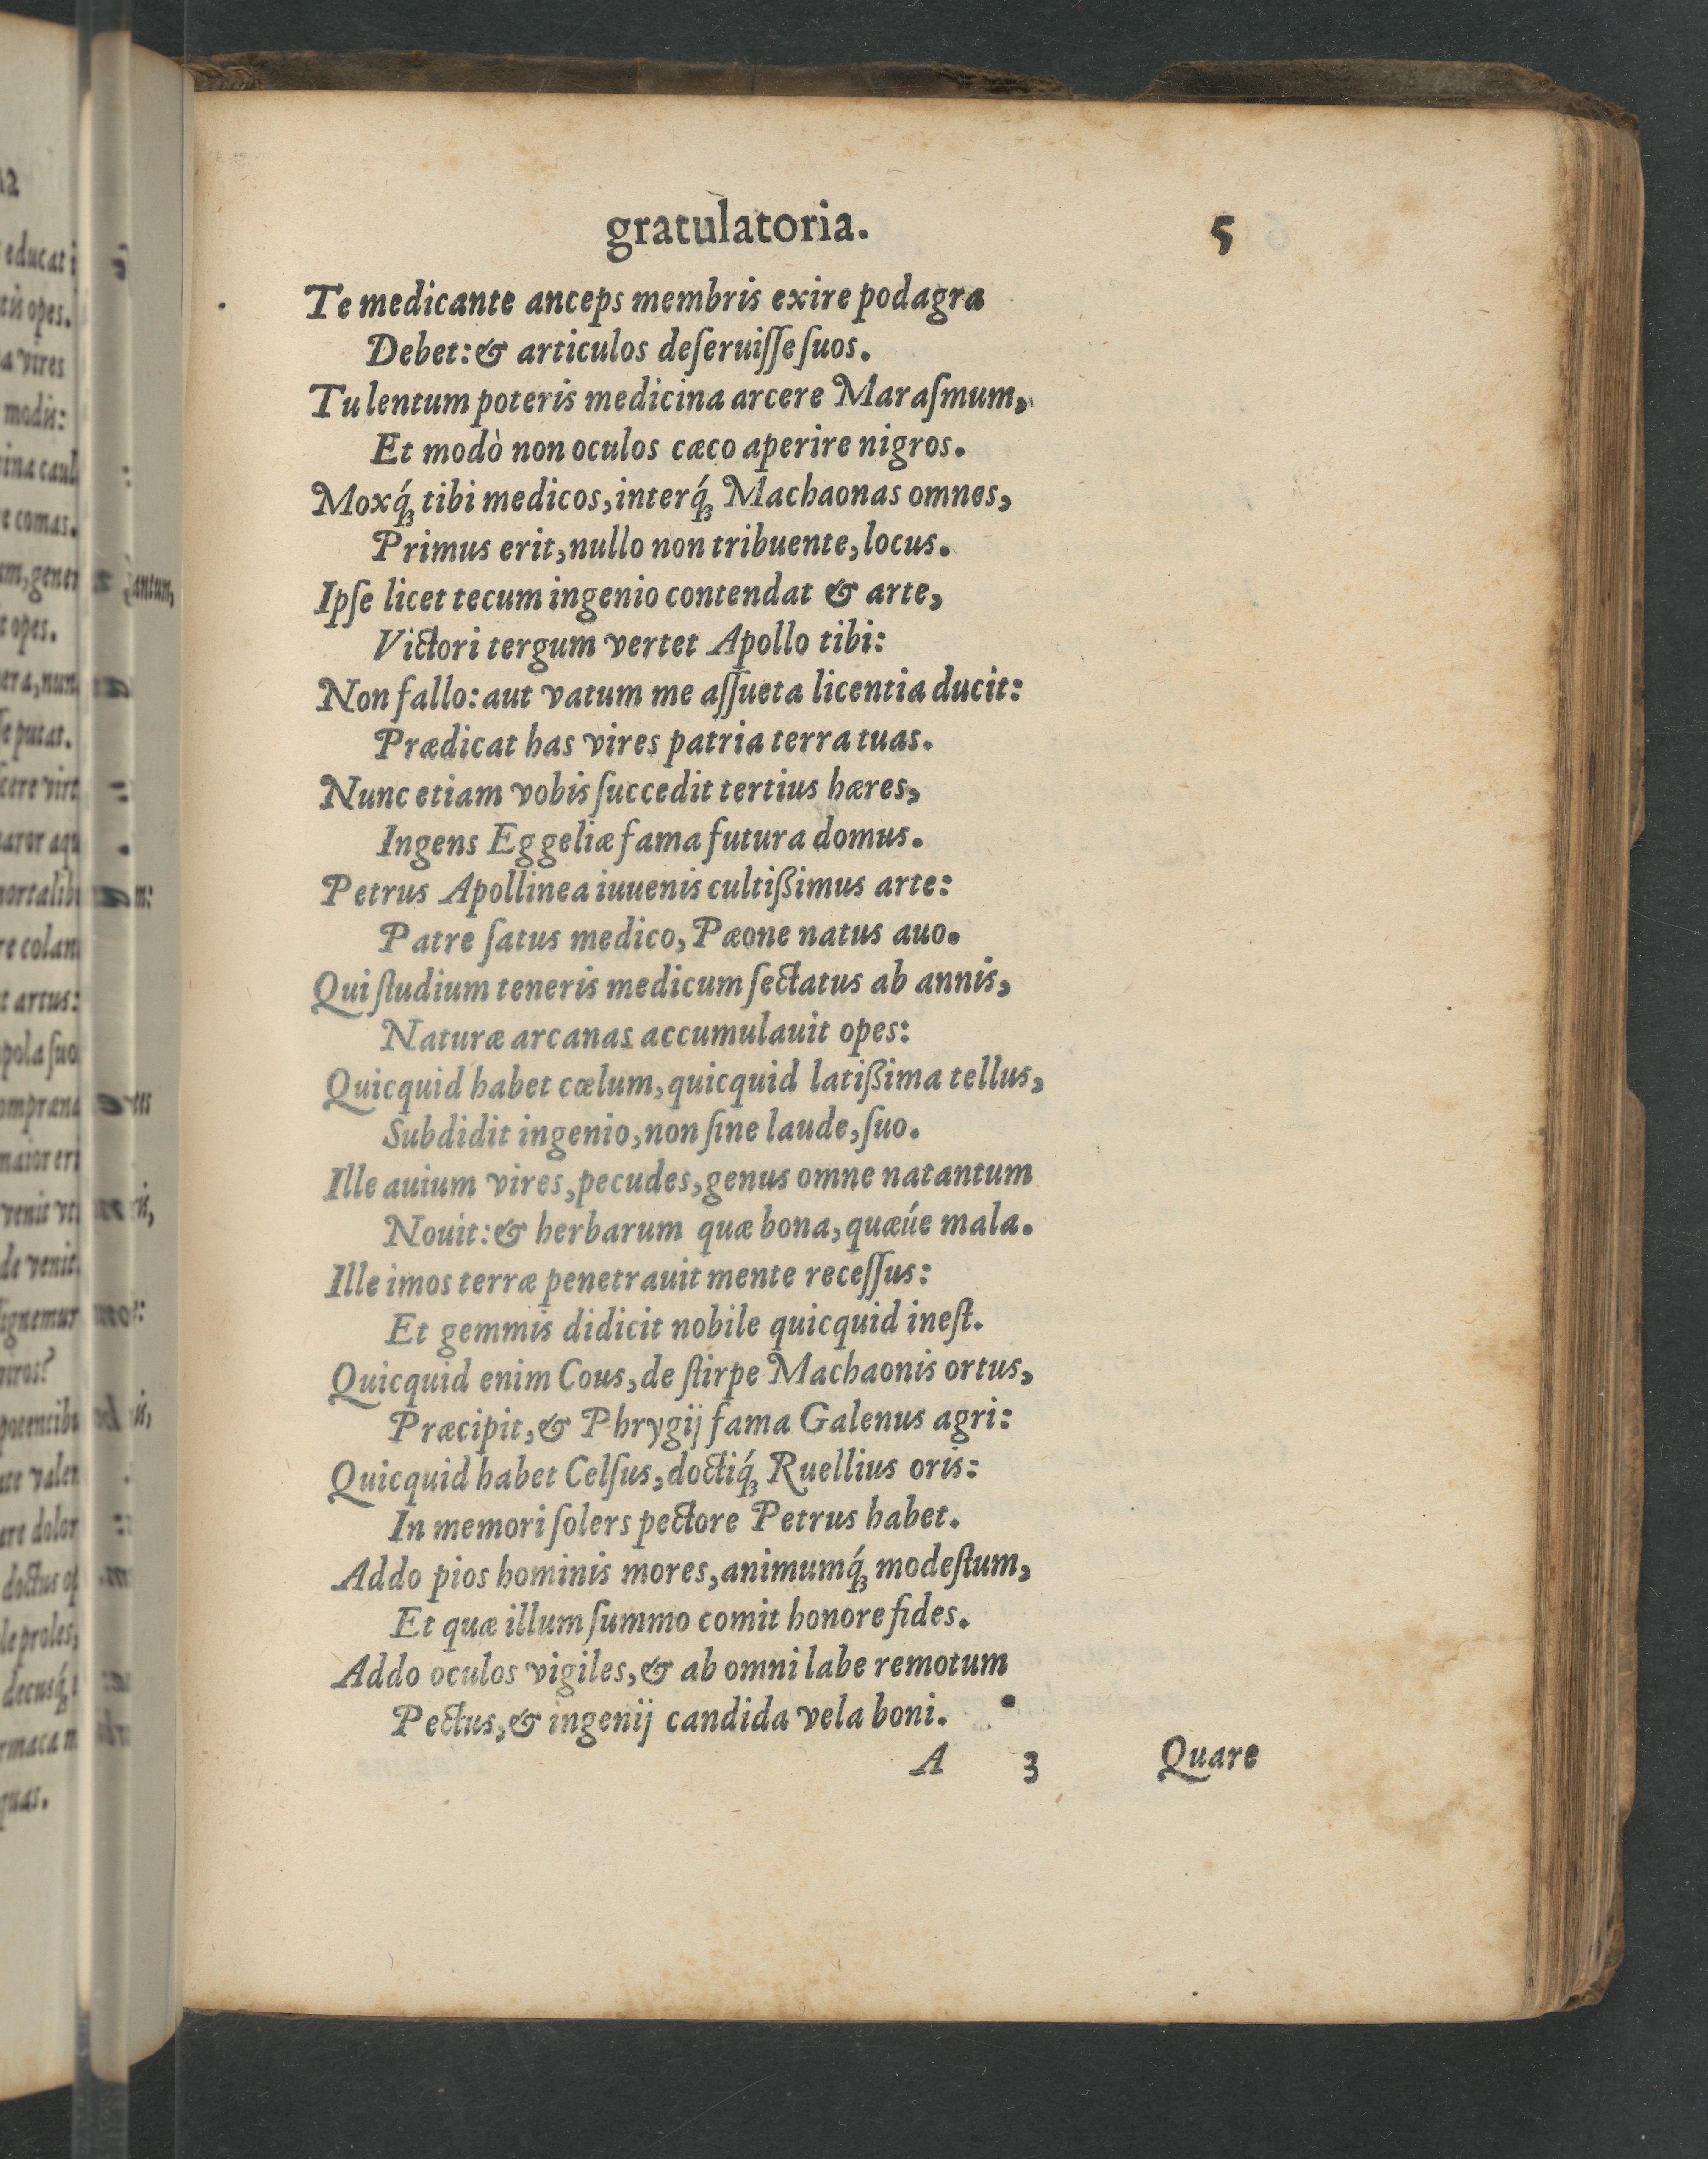 gratulatoria. 5
Te medicante anceps membris exire podagra
Debet: & articulos deſeruiſſe ſuos.
Tu lentum poteris medicina arcere Maraſmum,
Et modò non oculos cæco aperire nigros.
Moxq́ꝫ tibi medicos, interq́ꝫ Machaonas omnes,
Primus erit, nullo non tribuente, locus.
Ipſe licet tecum ingenio contendat & arte,
Victori tergum vertet Apollo tibi:
Non fallo: aut vatum me aſſueta licentia ducit:
Prædicat has vires patria terra tuas.
Nunc etiam vobis ſuccedit tertius hæres,
Ingens Eggeliæ fama futura domus.
Petrus Apollinea iuuenis cultißimus arte:
Patre ſatus medico, Pæone natus auo.
Qui ſtudium teneris medicum ſectatus ab annis,
Naturæ arcanas accumulauit opes:
Quicquid habet cœlum, quicquid latißima tellus,
Subdidit ingenio, non ſine laude, ſuo.
Ille auium vires, pecudes, genus omne natantum
Nouit: & herbarum quæ bona, quæúe mala.
Ille imos terræ penetrauit mente receſſus:
Et gemmis didicit nobile quicquid ineſt.
Quicquid enim Cous, de ſtirpe Machaonis ortus,
Præcipit, & Phrygij fama Galenus agri:
Quicquid habet Celſus, doctiq́ꝫ Ruellius oris:
In memori ſolers pectore Petrus habet.
Addo pios hominis mores, animumq́ꝫ modeſtum,
Et quæ illum ſummo comit honore fides.
Addo oculos vigiles, & ab omni labe remotum
Pectus, & ingenij candida vela boni.
A 3 Quare